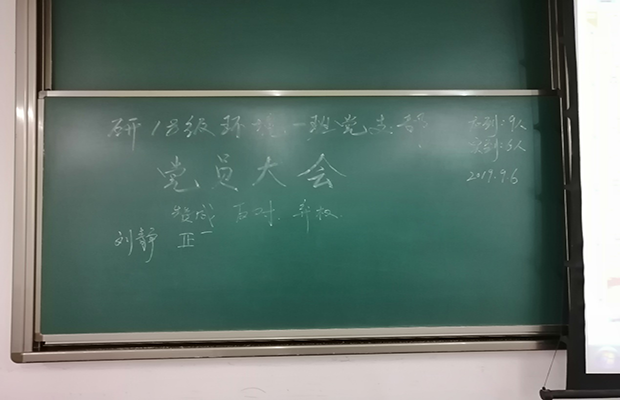 研18级环境一班党支部
应到:9人
实到:6人
2019.9.6
党员大会
赞成 反对 弃权
刘静 正一